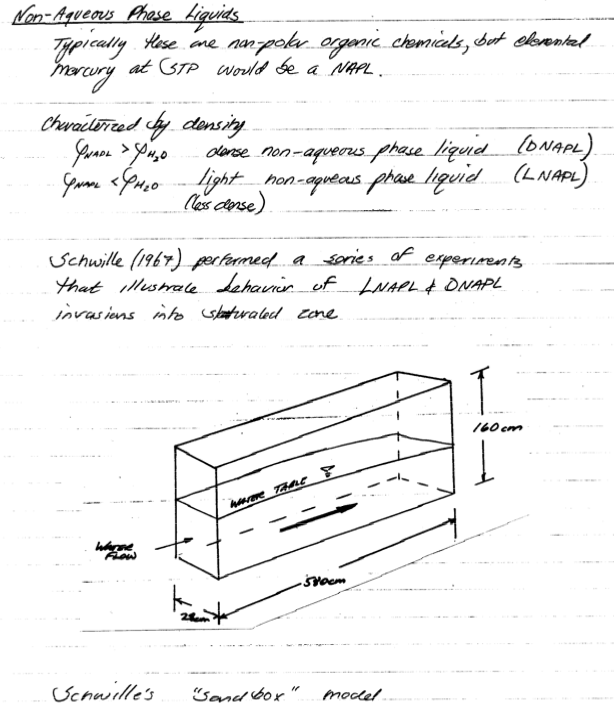 Non-Aqueous Phase Liquids
Typically these are non-polar organic chemicals, but elemental
mercury at STP would be a NAPL.
Characterized by density
ρNAPL > ρH2O dense non-aqueous phase liquid (DNAPL)
ρNAPL < ρH2O light non-aqueous phase liquid (LNAPL)
(less dense)
Schwille (1967) performed a series of experiments
that illustrate behavior of LNAPL & DNAPL
invasions into saturated zone
160 cm
WATER TABLE
WATER
FLOW
cm
28cm
Schwille's "sand box" model